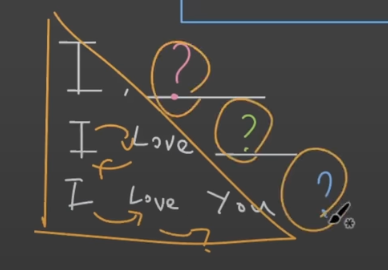 I, ?
I Love ?
I Love You ?